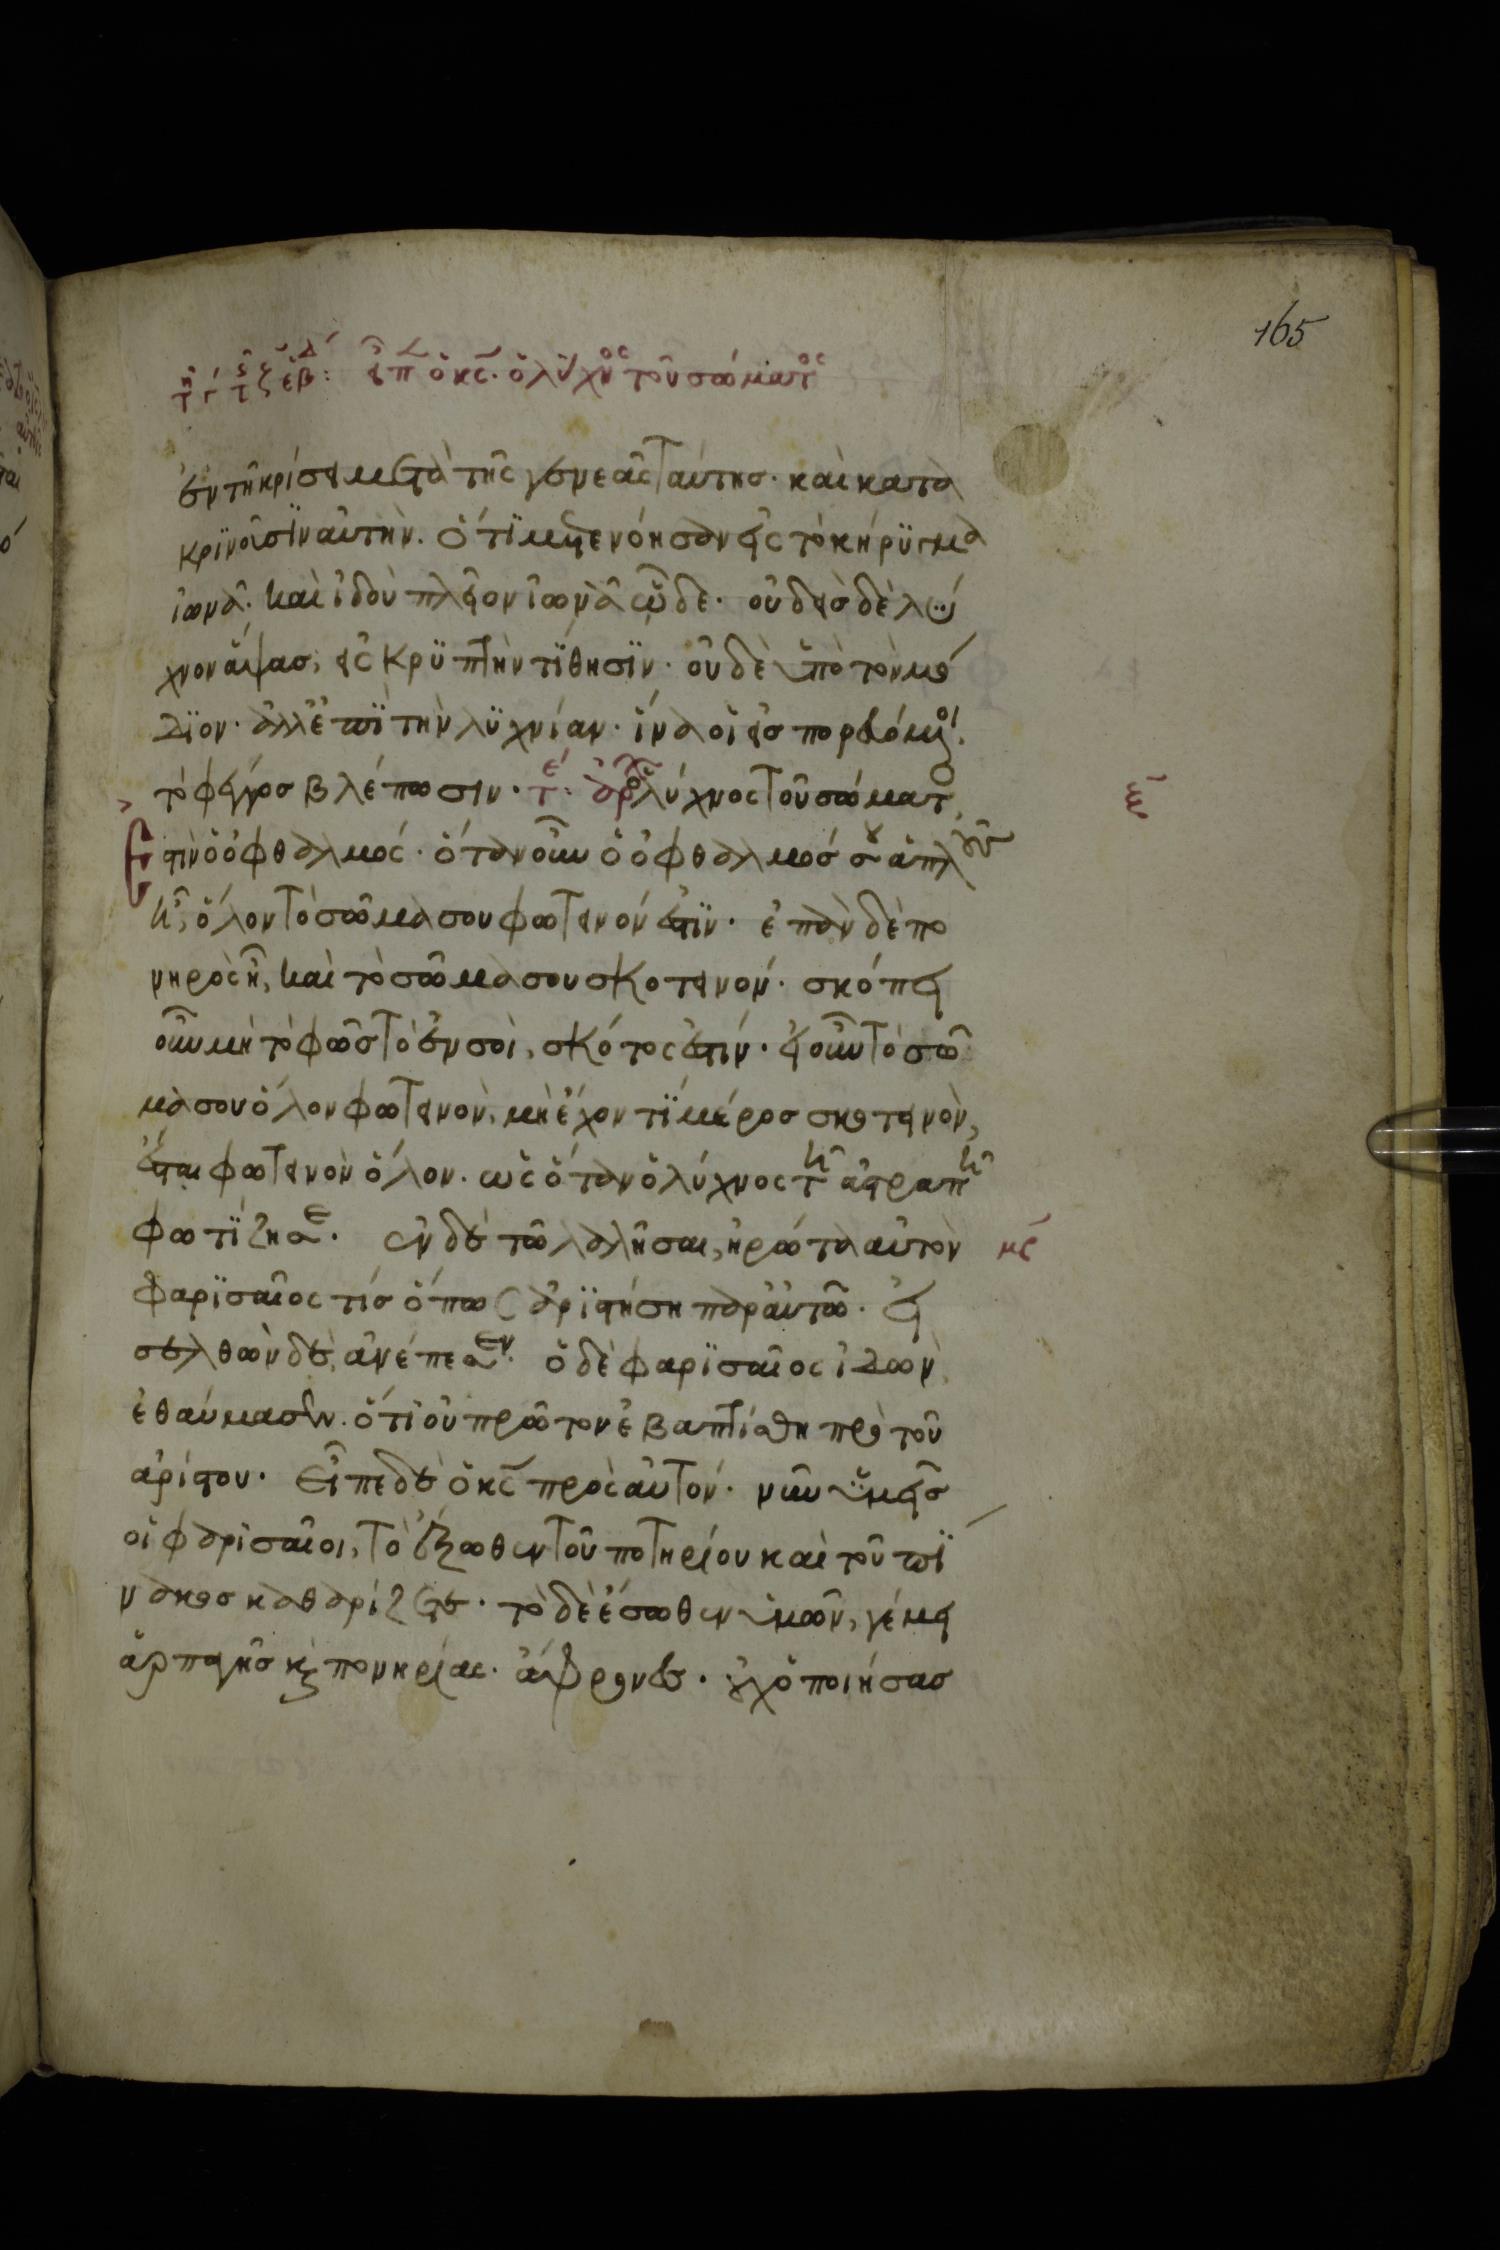 165
τῇ γ τῆς ζ ἑβδ: εἶπ ὁ κς. ὁ λύχνος τοῦ σώματος
ἐν τῆ κρίσει μετὰ τῆς γενεᾶς ταύτησ. καὶ κατα
κρϊνοῦσϊν αὐτὴν. ὅτϊ μετενόησαν εἰς τὸ κήρϋγμα
ἰωνᾶ. καὶ ἰδοὺ πλεῖον ἰωνᾶ ὧδε. οὐδεὶσ δὲ λϋ
χνον ἅψασ, εἰς κρϋπτὴν τίθησϊν. οὐδὲ ὑπὸ τὸν μό
δϊον. ἀλλ' ἐπϊ τὴν λϋχνίαν. ἵνα οἱ εἰσπορευόμενοι
τὸ φέγγοσ βλέπωσιν. τε. ἀρχ ὁ λύχνος τοῦ σώματ
ξ
Ἐστιν ὁ ὀφθαλμός. ὅταν οὖν ὁ ὀφθαλμόσ σου ἁπλοῦς
ἦ, ὅλον τὸ σῶμα σου φωτεινόν ἐστϊν. ἐπὰν δὲ πο
νηρὸς ἦ, καὶ τὸ σῶμα σου σκοτεινόν. σκόπει
οὖν μὴ τὸ φῶσ τὸ ἐν σοὶ, σκότος ἐστίν. εἰ οὖν τὸ σῶ
μα σου ὅλον φωτεινὸν, μὴ ἔχον τϊ μέροσ σκοτεινὸν,
ἔσται φωτεινὸν ὅλον. ὡς ὅταν ὁ λύχνος τῆ ἀστραπῆ
φωτίζη σε. ἐν δὲ τῶ λαλῆσαι, ἠρώτα αὐτὸν
μς
φαρϊσαῖος τίσ ὅπως ἀρϊστήση παρ' αὐτῶ. εἰ
σελθὼν δὲ, ἀνέπεσεν. ὁ δὲ φαρϊσαῖος ἰδὼν,
ἐθαύμασεν. ὅτι οὐ πρῶτον ἐβαπτίσθη πρὸ τοῦ
ἀρίστου. Εἶπε δὲ ὁ κς πρὸς αὐτόν. νῦν ὑμεῖσ
οἱ φαρισαῖοι, τὸ ἔξωθεν τοῦ ποτηρίου καὶ τοῦ πϊ
νακοσ καθαρίζετε. τὸ δὲ ἔσωθεν ὑμῶν, γέμει
ἁρπαγῆσ κ πονηρίας. ἄφρονεσ. οὐχ ὁ ποιήσασ